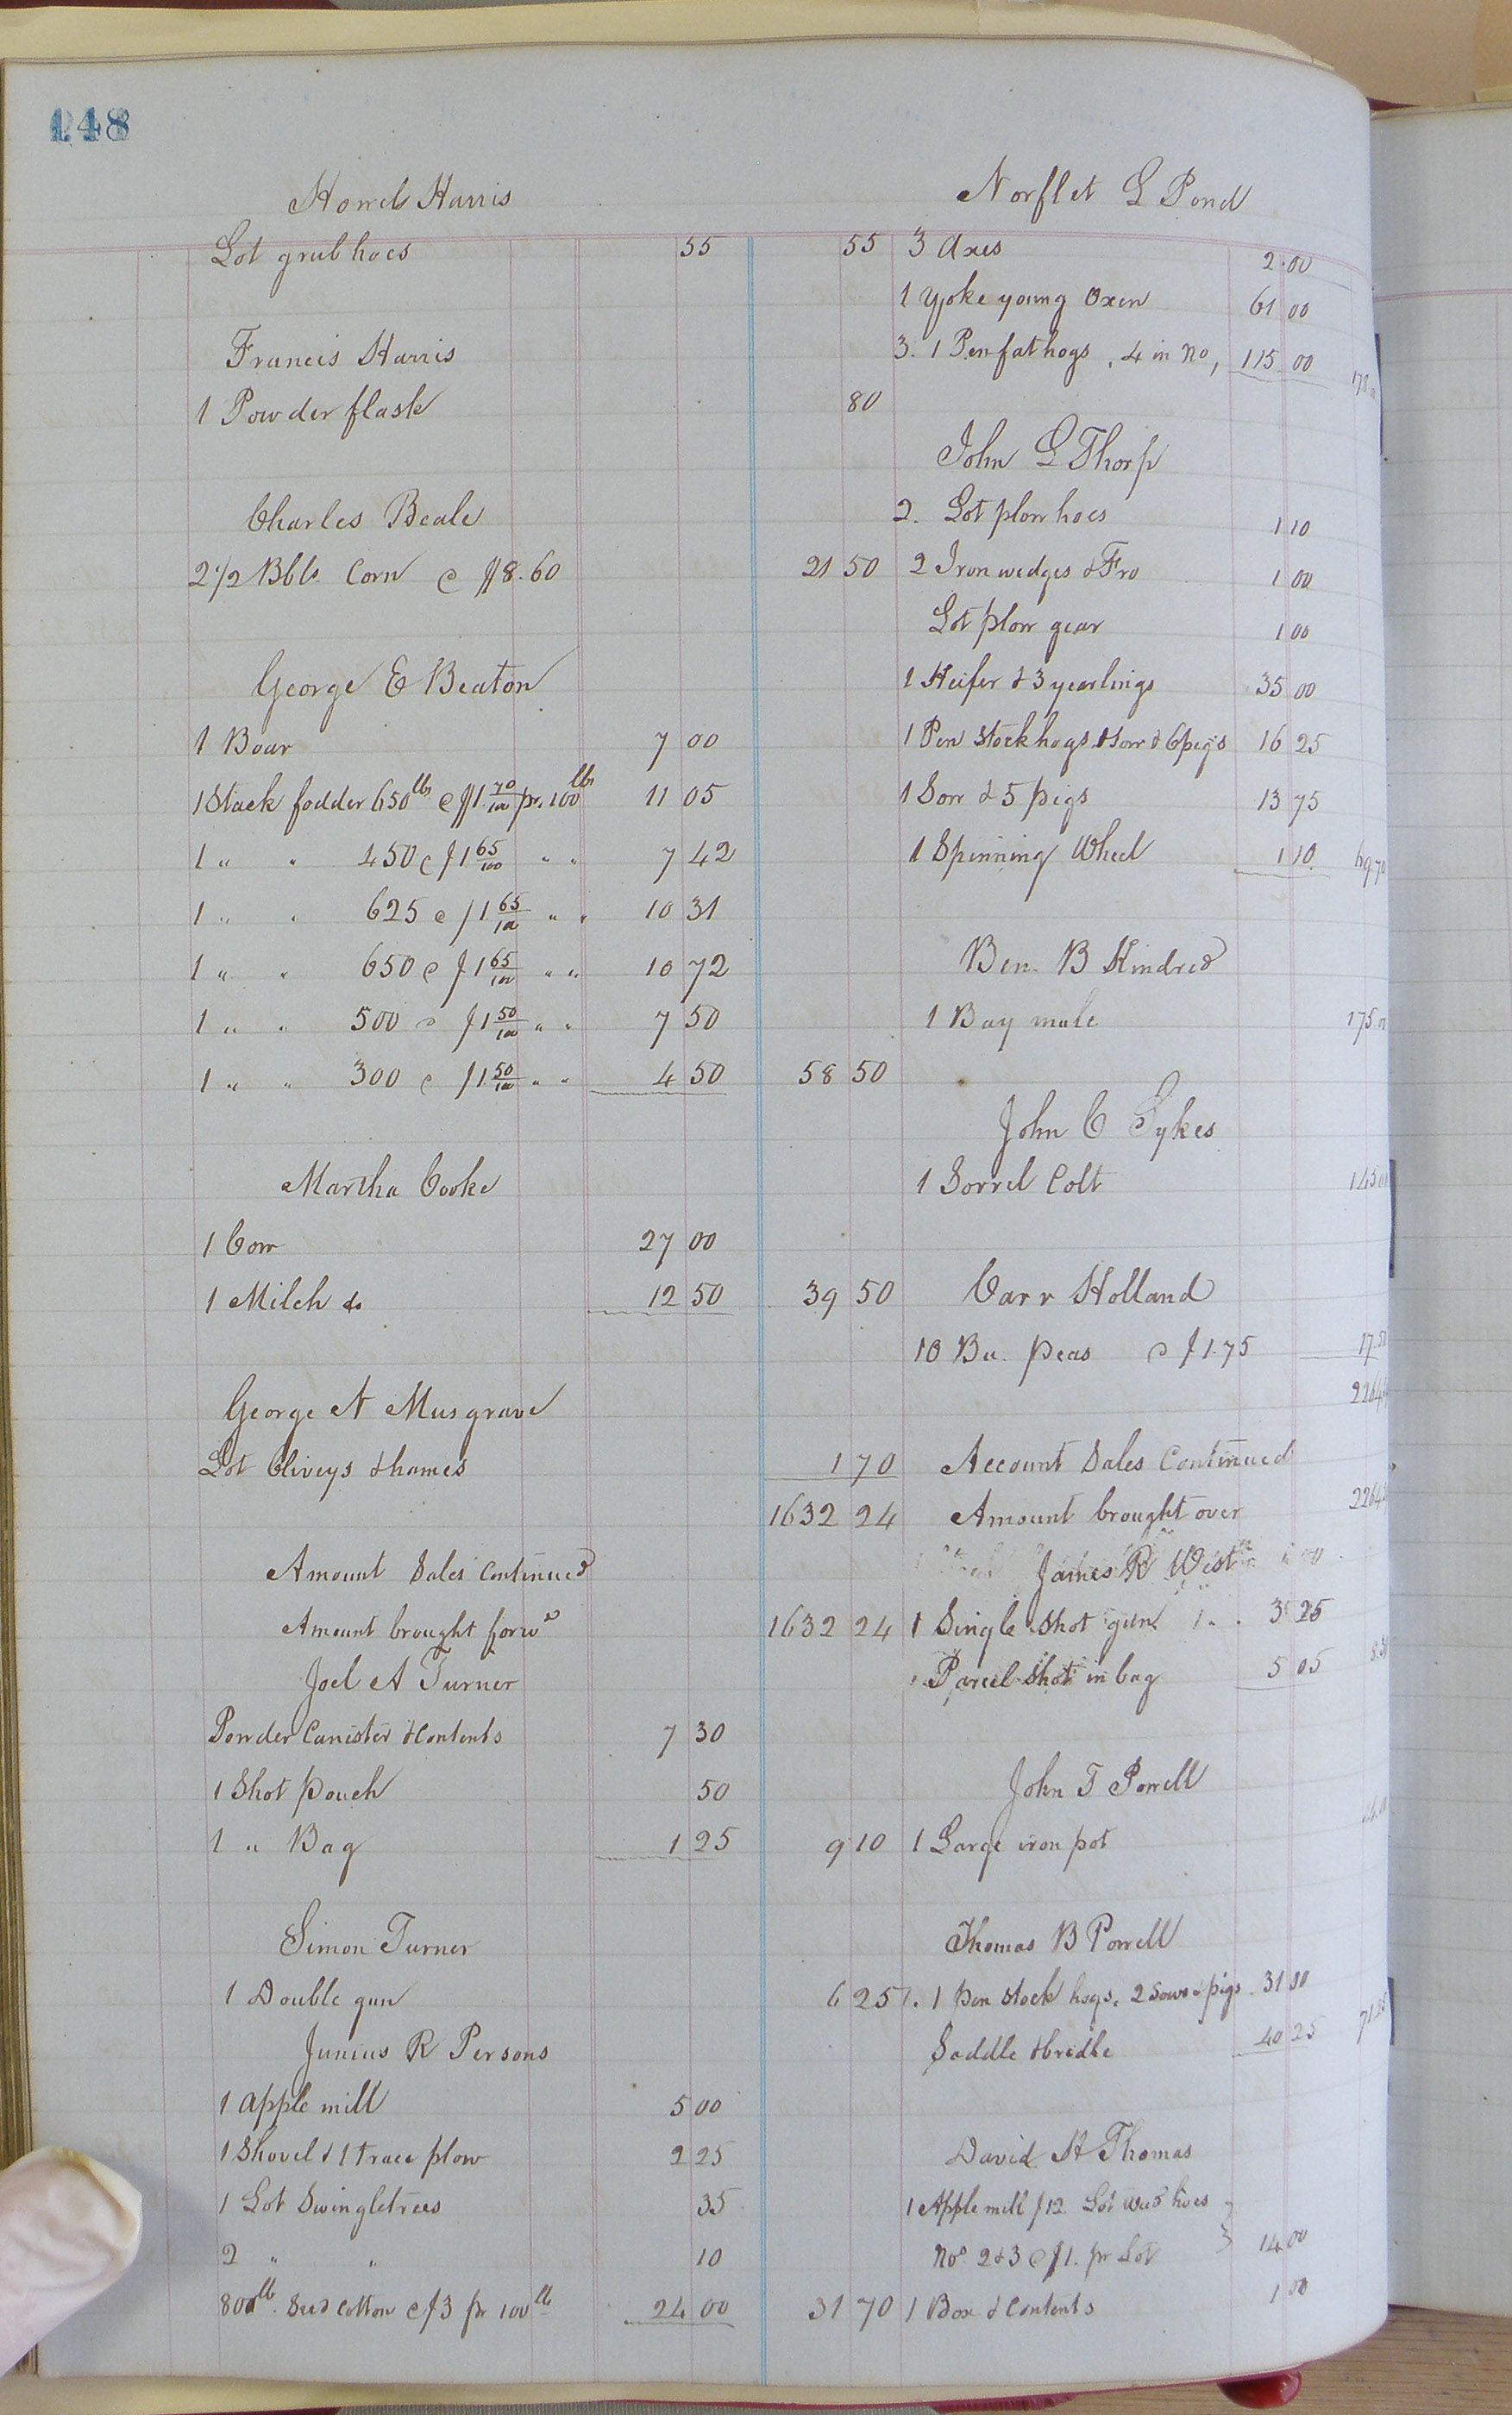 148
Horrel Harris
Lot grub hoes 55 55
Francis Harris
1 Powder flask 80
Charles Beale
2 1/2 Bbls Corn @ $8.60 21 50
George E Beaton
1 Boar 7 00
1 Stack fodder 650 lbs @ $1 70/100 pr. 100 lbs 11 05
1 " " 450 @ $1 65/100 " " 7 42
1 " " 625 @ $1 65/100 " " 10 31
1 " " 650 @ $1 65/100 " " 10 72
1 " " 500 @ $1 50/100 " " 7 50
1 " " 300 @ $1 50/100 " " 4 50 58 50
Martha Cooke
1 Cow 27 00
1 Milch do 12 50 39 50
George N Musgrave
Lot Cliveys & hames 1 70
1632 24
Amount Sales Continued
Amount brought forwd 1632 24
Joel A Turner
Powder Canister & Contents 7 30
1 Shot pouch 50
1 " Bag 1 25 9 10
Simon Turner
1 Double gun 6 25
Junius R Persons
1 Apple mill 5 00
1 Shovel & 1 trace plow 2 25
1 Lot Swingletrees 35
2 " " 10
800 lb. Seed Cotton @ $3 pr 100 lb 24 00 31 70
Norflet L Pond
3 Axes 2.00
1 Yoke young Oxen 61 00
3. 1 Pen fat hogs, 4 in No, 115 00
John L Thorp
2. Lot plow hoes 1 10
2 Iron wedges & Fro 1 00
Lot plow gear 1 00
1 Heifer & 3 yearlings 35 00
1 Pen Stock hogs & Sow & 6 pigs 16 25
1 Sow & 5 pigs 13 75
1 Spinning Wheel 1 10 69.70
Ben. B Kindred
1 Bay mule 175
John C Sykes
1 Sorrel Colt 145
Carr Holland
10 Bu. peas @ $1.75 17.5
2264
Account Sales Continued
Amount brought over 2264
James R West
1 Single Shot gun 3 25
Parcel Shot in bag 5 05
John T Powell
1 Large iron pot
Thomas B Powell
1. 1 pen Stock hogs, 2 Sows & pigs 31 00
Saddle & bridle 40 25 71.25
David H Thomas
1 Apple mill $12. Lot weed hoes
Nos 2 & 3 @ $1. pr Lot 14 00
1 Box & Contents 1 00